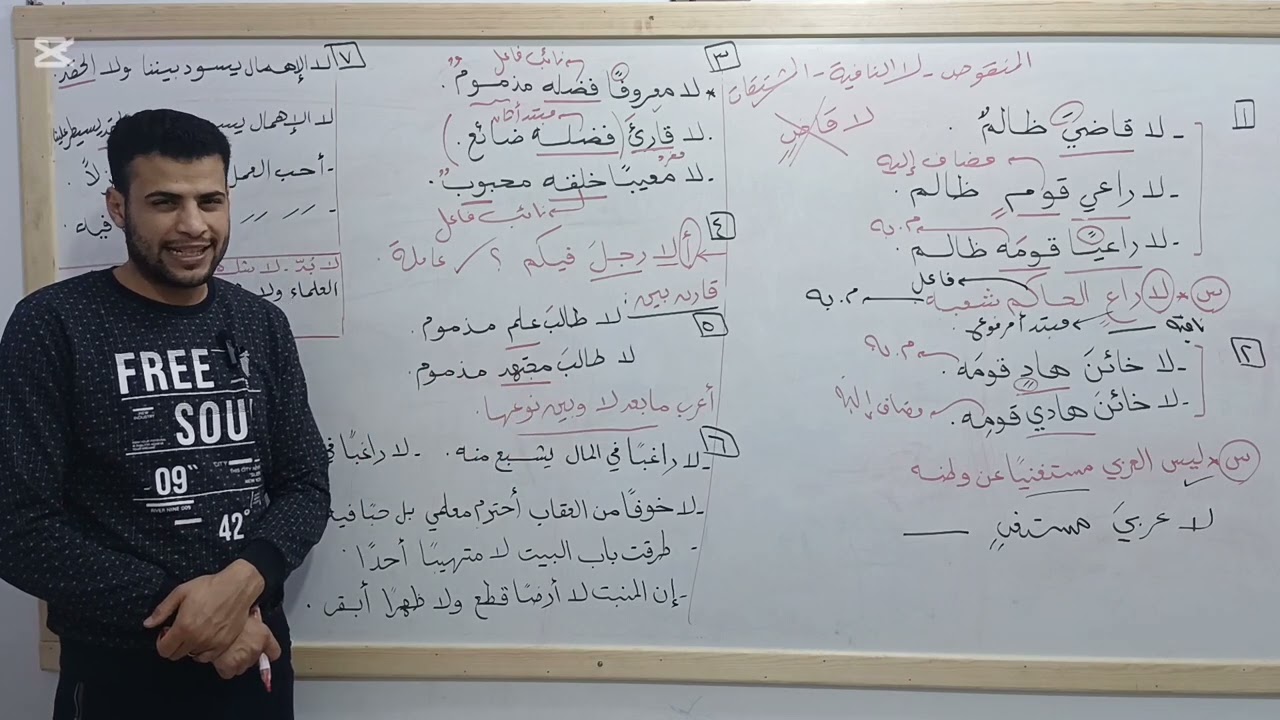 المنقوص - لا النافية - المشتقات
١
- لا قاضيَ ظالمٌ .
لا قاضٍ
مضاف إليه
- لا راعي قومٍ ظالم .
م. به
- لا راعيًا قومَه ظالم
س * لا راعٍ الحاكم شعبه م. به
فاعل
نافية مبتدأ مرفوع.
٢
م. به
- لا خائنَ هادٍ قومَه .
مضاف إليه
- لا خائن هادي قومِه .
س * ليس العربي مستغنيًا عن وطنه
لا عربيَ مستغنٍ
٣
نائب فاعل
* لا معروفًا فضله مذموم .
مبتدأ ثان
. لا قارئَ (فضله ضائع . )
مفرد
- لا مُعيبًا خلقه محبوب .
نائب فاعل
٤
أ لا رجلَ فيكم ؟ عاملة
قارن بين :
٥
لا طالبَ علم مذموم .
لا طالبَ مجتهد مذموم .
أعرب ما بعد لا وبين نوعها
٦
- لا راغبًا في المال يشبع منه . - لا راغبًا
- لا خوفًا من العقاب أحترم معلمي بل حبًا فيه
- طرقت باب البيت لا متهيبًا أحدًا
- إن المنبت لا أرضًا قطع ولا ظهرًا أبقى .
٧
لا الإهمال يسود بيننا ولا الحقد.
لا الإهمال يسود
- أحب العمل
فيه .
لا بُدّ - لا شك
العلماء ولا
FREE
SOU
09"
42°